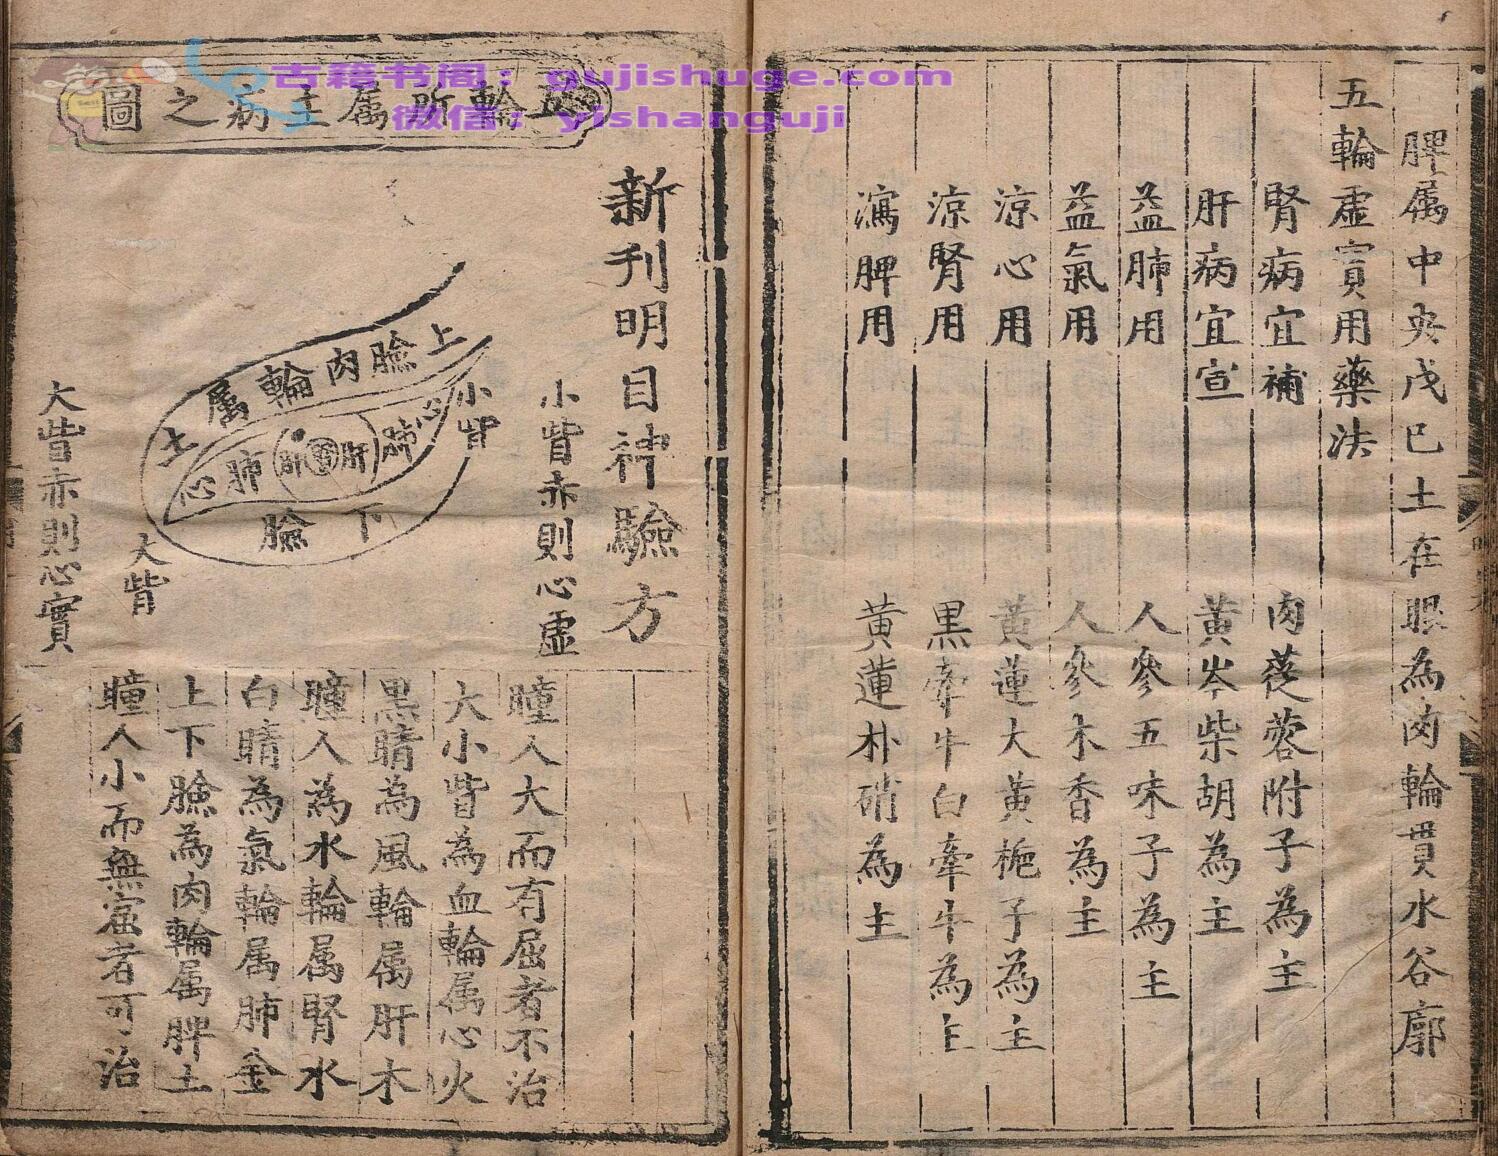 脾属中央戊巳土在眼為肉輪貫水谷廓
五輪虛實用藥法
腎病宜補 肉蓯蓉附子為主
肝病宜宣 黃岑柴胡為主
益肺用 人參五味子為主
益氣用 人參木香為主
涼心用 黃蓮大黃梔子為主
涼腎用 黑牽牛白牽牛為主
瀉脾用 黃蓮朴硝為主
五輪所属主病之圖
新刊明目神驗方
小眥赤則心虛
上臉肉輪属土
小眥
心肺肝
肝肺心
下臉
大眥
大眥赤則心實
瞳人大而有屈者不治
大小眥為血輪属心火
黑睛為風輪属肝木
瞳人為水輪属腎水
白睛為氣輪属肺金
上下臉為肉輪属脾土
瞳人小而無屈者可治
古籍书阁：gujishuge.com
微信：yishanguji